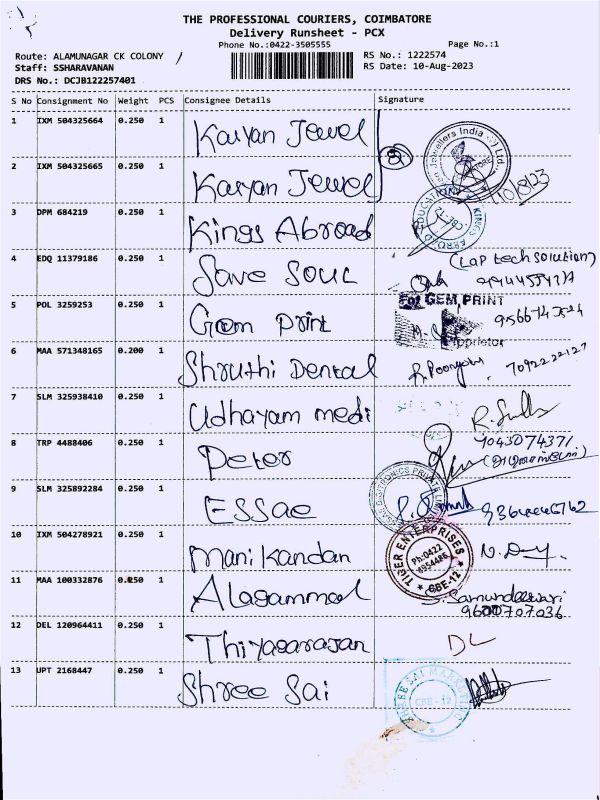 THE PROFESSIONAL COURIERS, COIMBATORE
Delivery Runsheet - PCX
Phone No.:0422-3505555 Page No.:1
Route: ALAMUNAGAR CK COLONY / RS No.: 1222574
Staff: SSHARAVANAN RS Date: 10-Aug-2023
DRS No.: DCJB122257401
S No Consignment No Weight PCS Consignee Details Signature
1 IXM 504325664 0.250 1 Kalyan Jewel
2 IXM 504325665 0.250 1 Kalyan Jewel 10/8/23
3 DPM 684219 0.250 1 Kings Abroad
4 EDQ 11379186 0.250 1 Save Soul (Lap tech solution)
5 POL 3259253 0.250 1 Gem Print For GEM PRINT
6 MAA 571348165 0.200 1 Shruthi Dental
7 SLM 325938410 0.250 1 Udhayam medi
8 TRP 4488406 0.250 1 Peter
9 SLM 325892284 0.250 1 Essae
10 IXM 504278921 0.250 1 Manikandan TIGER ENTERPRISES CBE-12
11 MAA 100332876 0.250 1 Alagammal
9600707036
12 DEL 120964411 0.250 1 Thiyagarajan DL
13 UPT 2168447 0.250 1 Shree Sai CBE-12